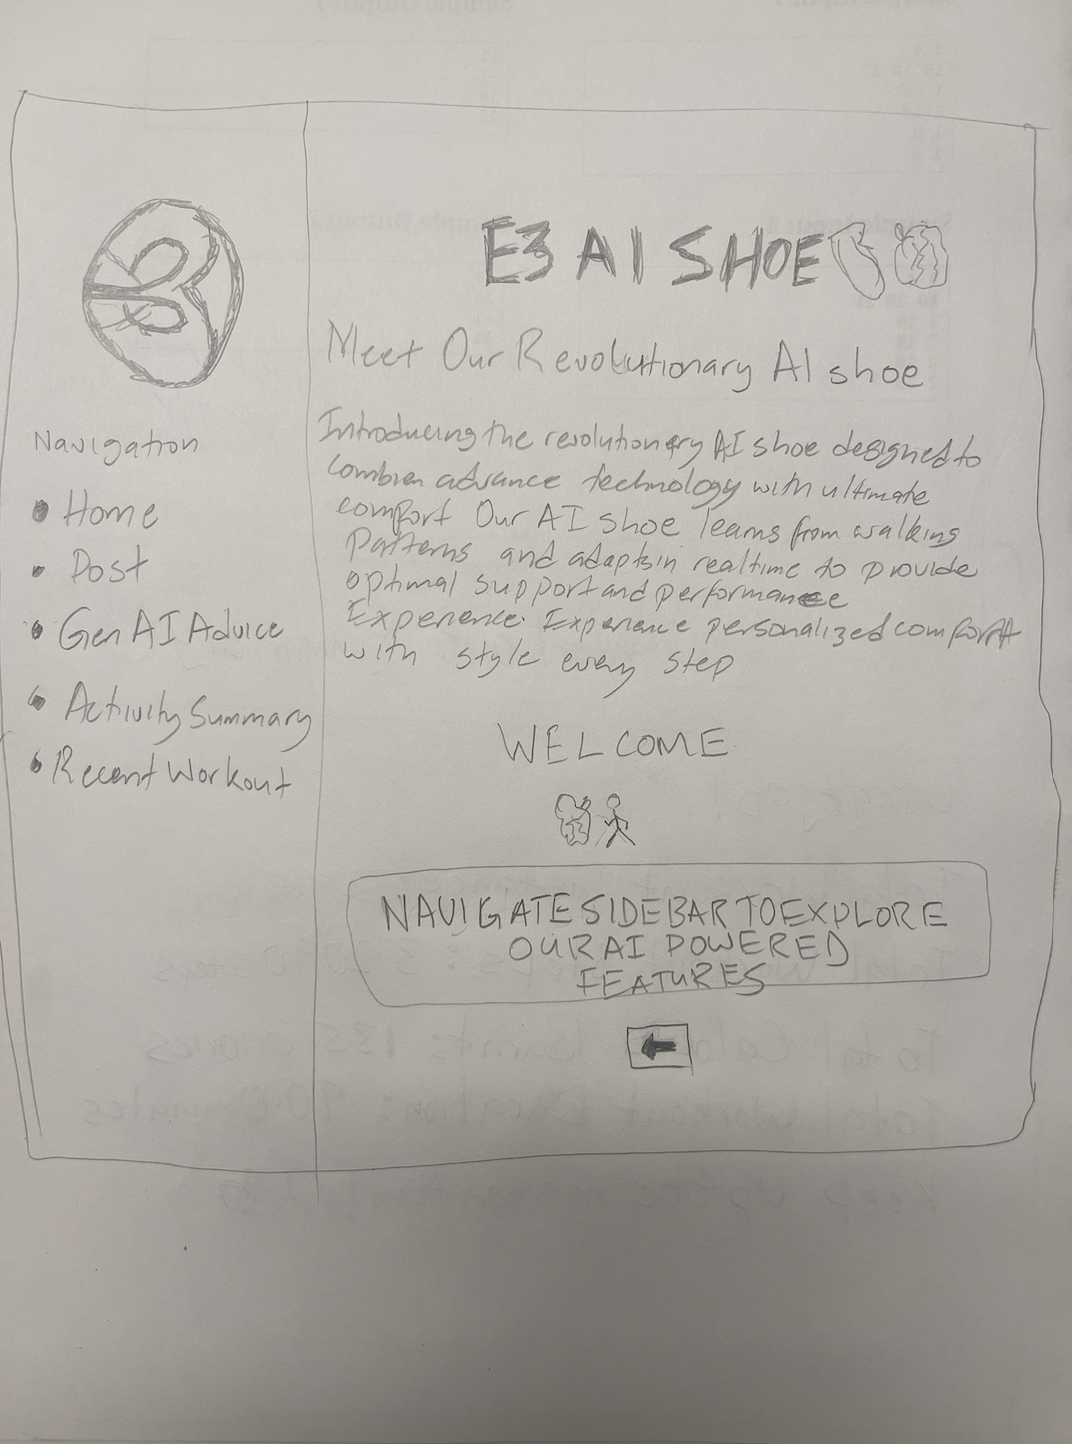 E3 AI SHOE
Meet Our Revolutionary AI shoe
Navigation
Home
Post
Gen AI Advice
Activity Summary
Recent Workout
Introducing the revolutionary AI shoe designed to
combien advance technology with ultimate
comfort Our AI shoe learns from walking
Patterns and adapts in realtime to provide
optimal support and performance
Experience. Experience personalized comfort
with style every step
WELCOME
NAVIGATE SIDEBAR TO EXPLORE
OUR AI POWERED
FEATURES